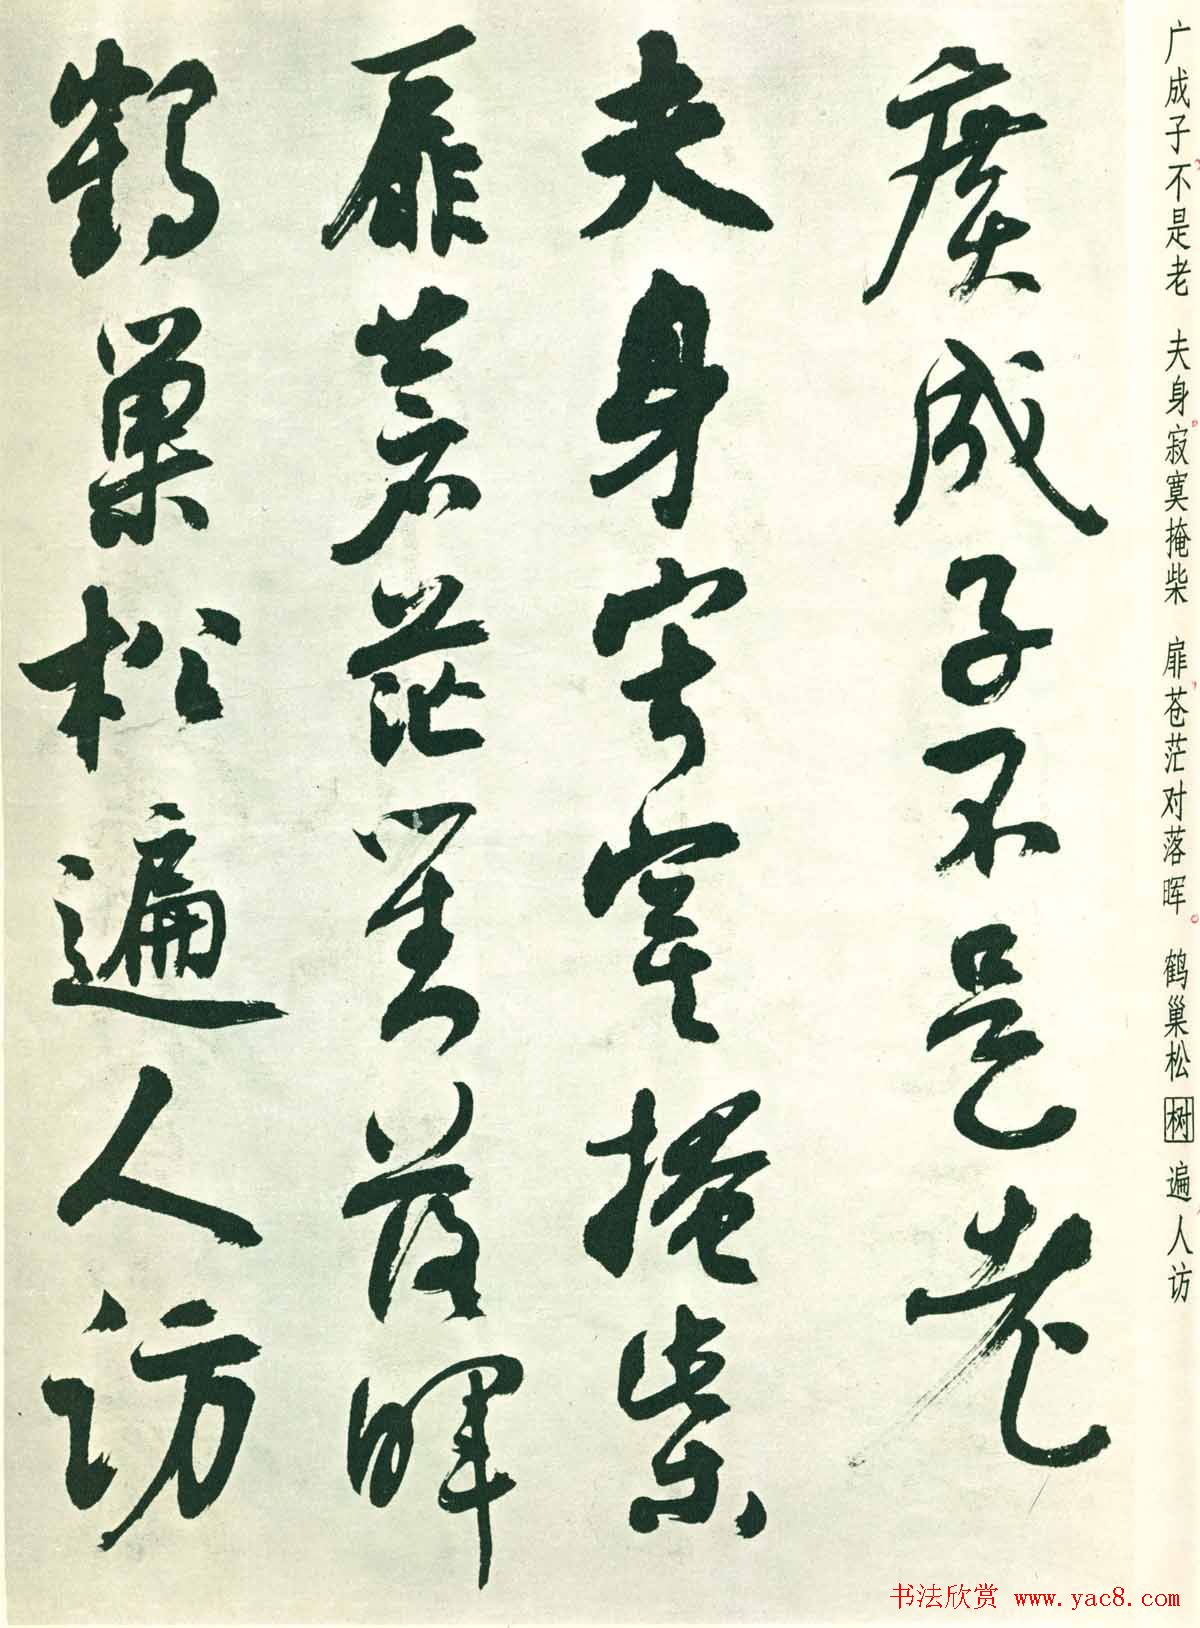 广成子不是老 夫身寂寞掩柴 扉苍茫对落晖 鹤巢松树遍人访
廣成子不是老
夫身寂寞掩柴
扉蒼茫對落暉
鶴巢松遍人訪
书法欣赏 www.yac8.com